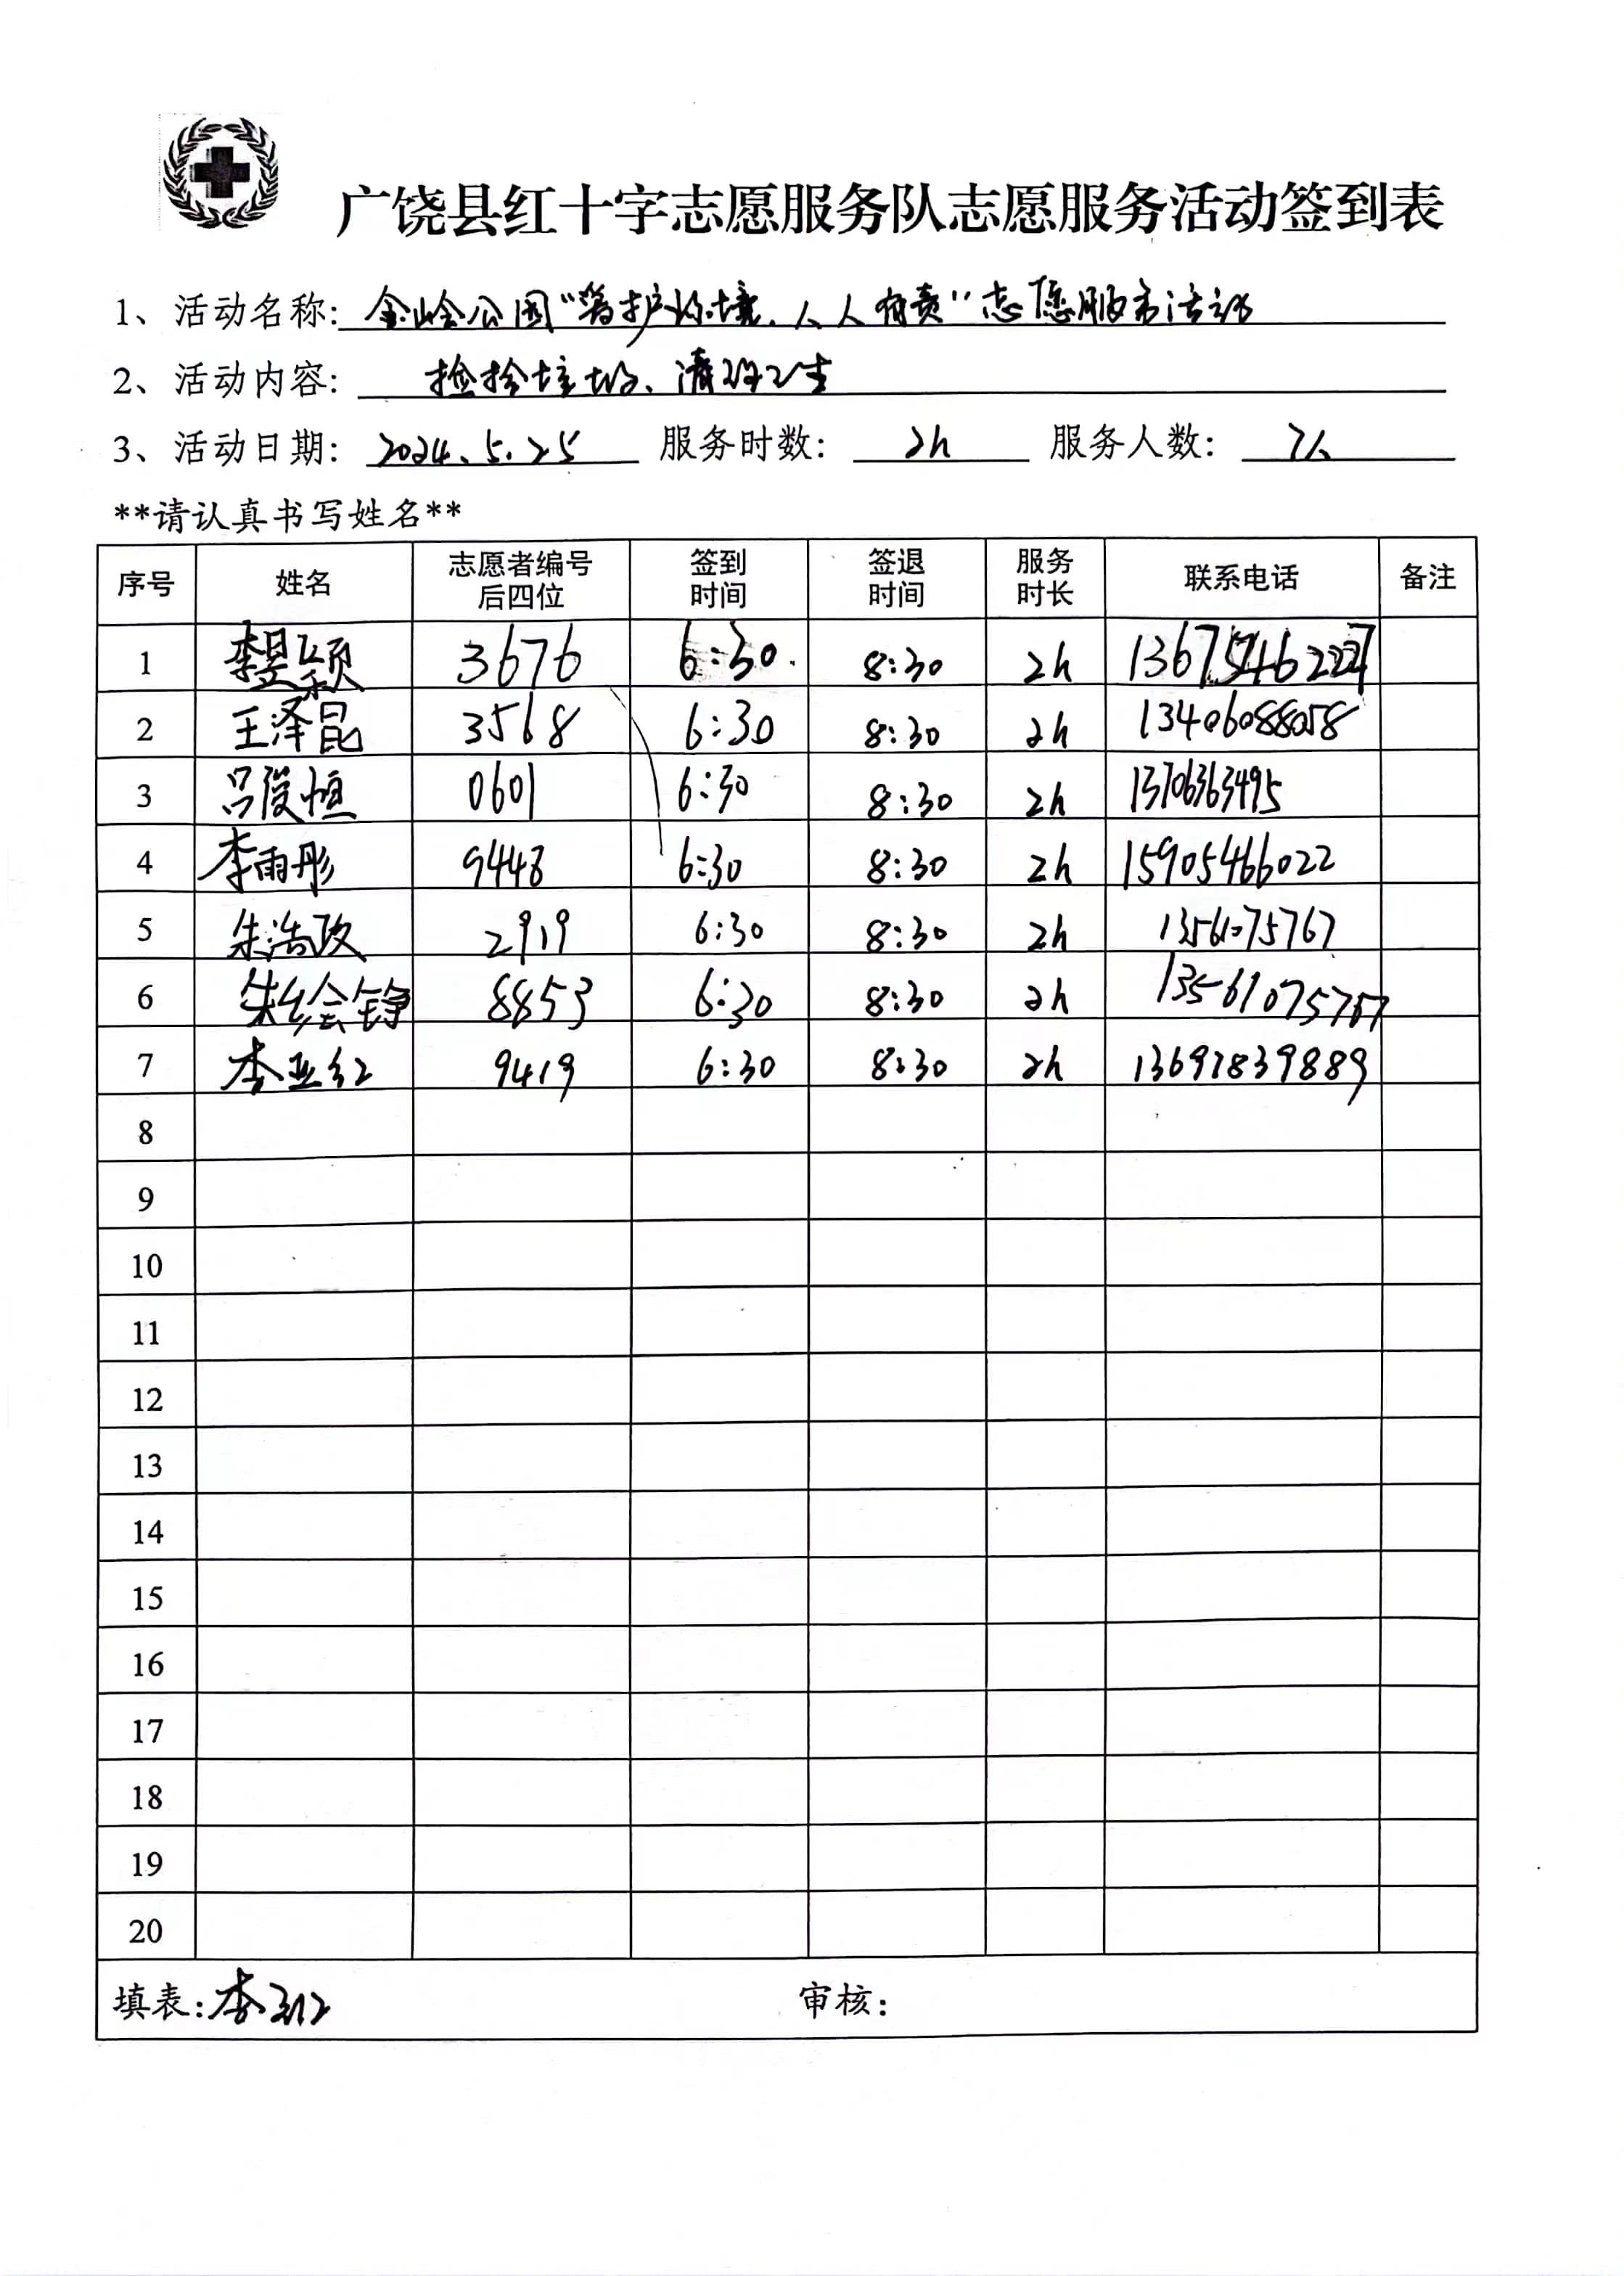 广饶县红十字志愿服务队志愿服务活动签到表
1、活动名称: 金岭公园“着护环境、人人有责”志愿服务活动
2、活动内容: 捡拾垃圾、清理卫生
3、活动日期: 2024.5.25 服务时数: 2h 服务人数: 7人
**请认真书写姓名**
序号 姓名 志愿者编号后四位 签到时间 签退时间 服务时长 联系电话 备注
1 李昱颖 3676 6:30 8:30 2h
2 王泽昆 3568 6:30 8:30 2h 13406088058
3 吕俊恒 0601 6:30 8:30 2h 13706363495
4 李雨彤 9448 6:30 8:30 2h 15905466022
5 朱浩政 2919 6:30 8:30 2h
6 朱绘铮 8853 6:30 8:30 2h 13561075767
7 李亚红 9419 6:30 8:30 2h 13697839889
8
9
10
11
12
13
14
15
16
17
18
19
20
填表: 李亚红 审核: